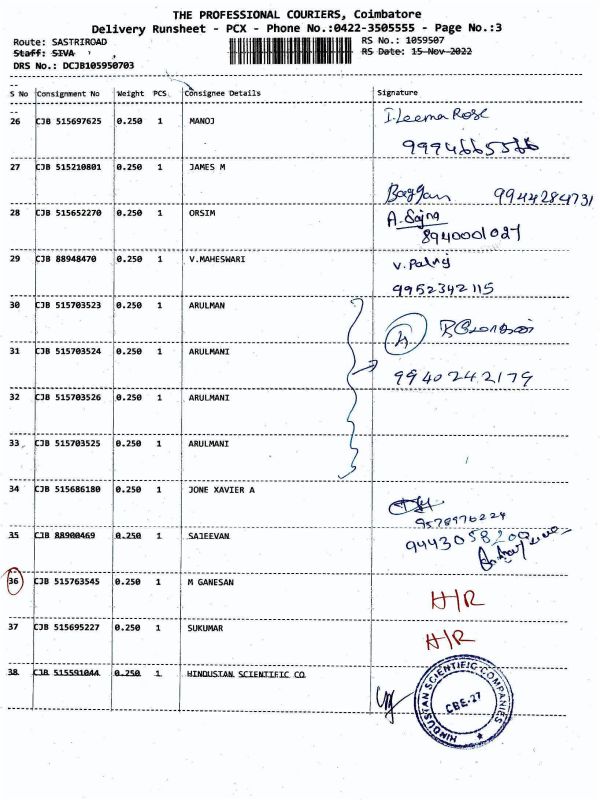 THE PROFESSIONAL COURIERS, Coimbatore
Delivery Runsheet - PCX - Phone No.:0422-3505555 - Page No.:3
Route: SASTRIROAD RS No.: 1059507
Staff: SIVA RS Date: 15 Nov 2022
DRS No.: DCJB105950703
S No Consignment No Weight PCS. Consignee Details Signature
26 CJB 515697625 0.250 1 MANOJ I.Leema Rose
27 CJB 515210801 0.250 1 JAMES M
9944284731
28 CJB 515652270 0.250 1 ORSIM A. Sajna
8940001027
29 CJB 88948470 0.250 1 V.MAHESWARI
9952342115
30 CJB 515703523 0.250 1 ARULMAN
31 CJB 515703524 0.250 1 ARULMANI
9940242179
32 CJB 515703526 0.250 1 ARULMANI
33 CJB 515703525 0.250 1 ARULMANI
34 CJB 515686180 0.250 1 JONE XAVIER A
9578976224
35 CJB 88900469 0.250 1 SAJEEVAN 9443058200
36 CJB 515763545 0.250 1 M GANESAN H/R
37 CJB 515695227 0.250 1 SUKUMAR H/R
38 CJB 515591044 0.250 1 HINDUSTAN SCIENTIFIC CO
HINDUSTAN SCIENTIFIC COMPANIES
CBE-27